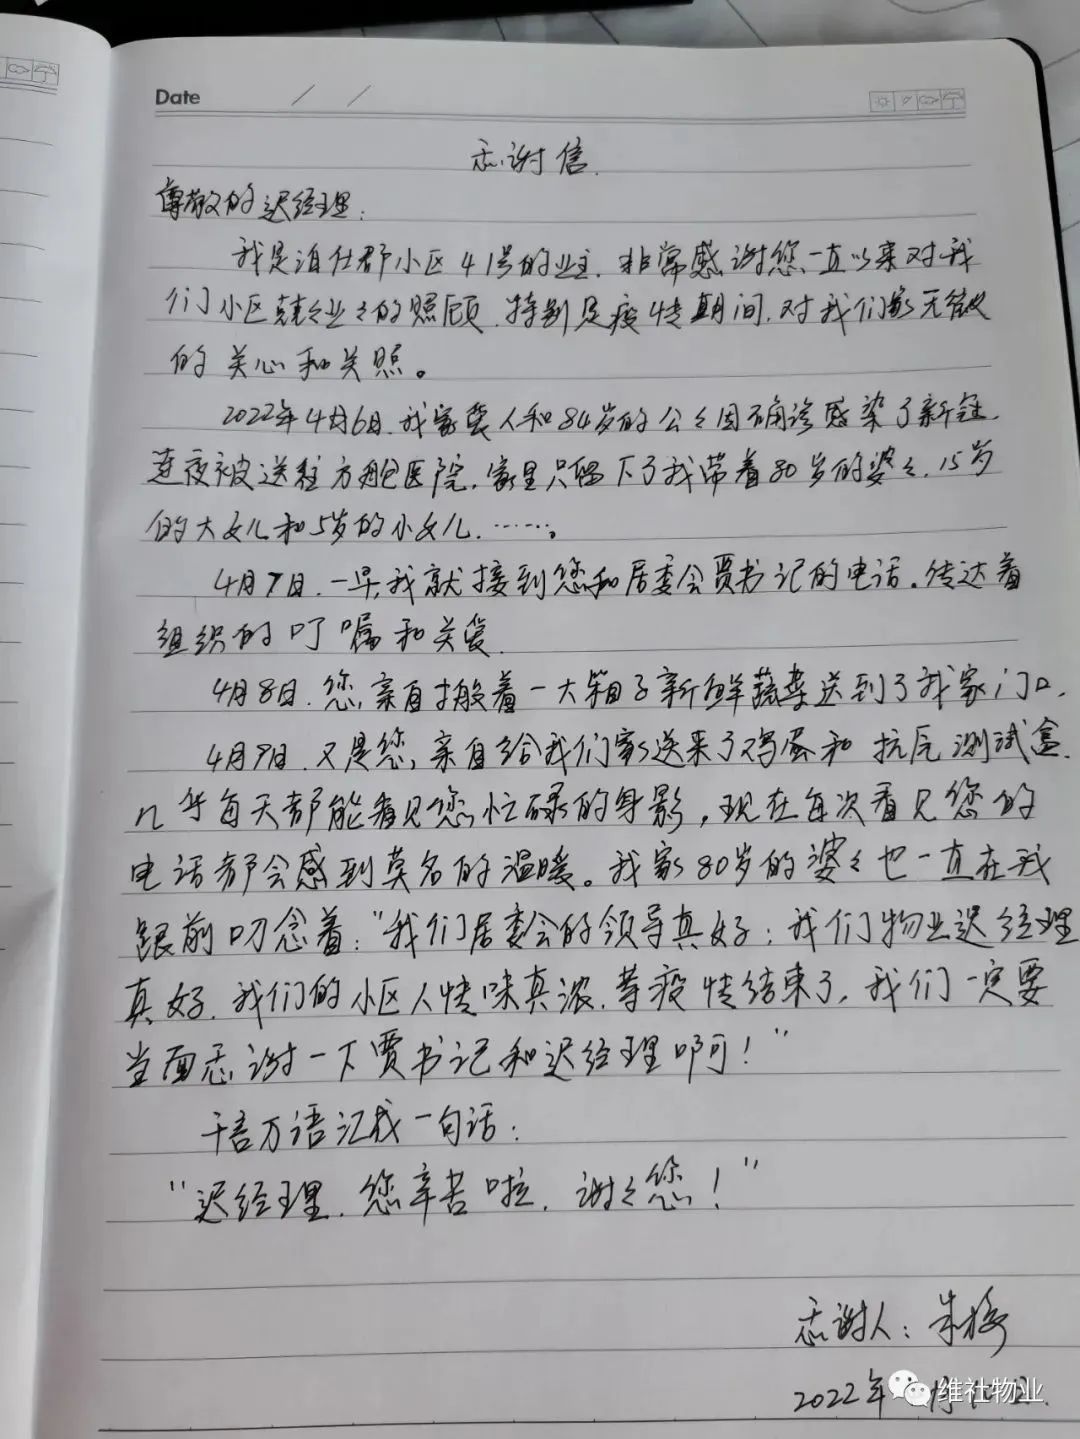 Date / /
感谢信.
尊敬的迟经理:
我是泊仕郡小区41号的业主.非常感谢您一直以来对我
们小区业的照顾.特别是疫情期间,对我们家无微
的关心和关照。
2022年4月6日.我家爱人和84岁的公公因确诊感染了新冠.
连夜被送往方舱医院.家里只留下了我带着80岁的婆婆.15岁
的大女儿和5岁的小女儿.……。
4月7日.一早,我就接到您和居委会贾书记的电话。传达着
组织的叮嘱和关爱.
4月8日.您亲自搬着一大箱子新鲜蔬菜送到了我家门口.
4月9日.又是您,亲自给我们家送来了鸡蛋和抗原测试盒.
几乎每天都能看见您忙碌的身影,现在每次看见您的
电话都会感到莫名的温暖。我家80岁的婆婆也一直在我
跟前叨念着:“我们居委会的领导真好;我们物业迟经理
真好.我们的小区人情味真浓.等疫情结束了,我们一定要
当面感谢一下贾书记和迟经理啊!”
千言万语汇成一句话:
“迟经理.您辛苦啦.谢谢您!”
感谢人:朱
2022年
维社物业